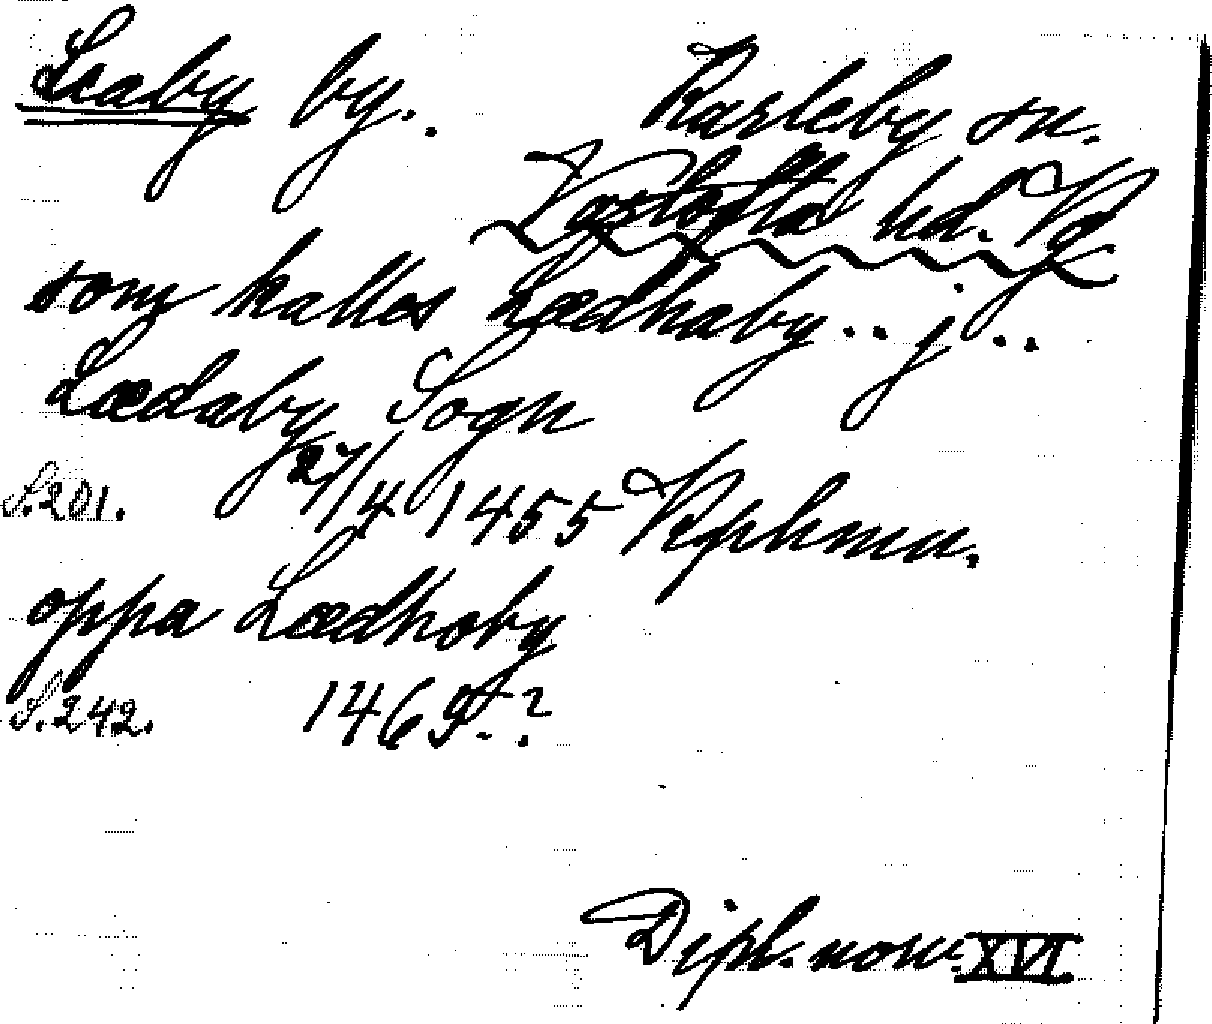 Leaby by.
Karleby sn.
Vartofta hd. Vg
som kalles Lædhaby .. j ..
Lædaby Sogn
S.201. 27/4 1455 Kphmn.
oppa Lædhoby
S.242. 1469-?
Dipl. norv. XVI